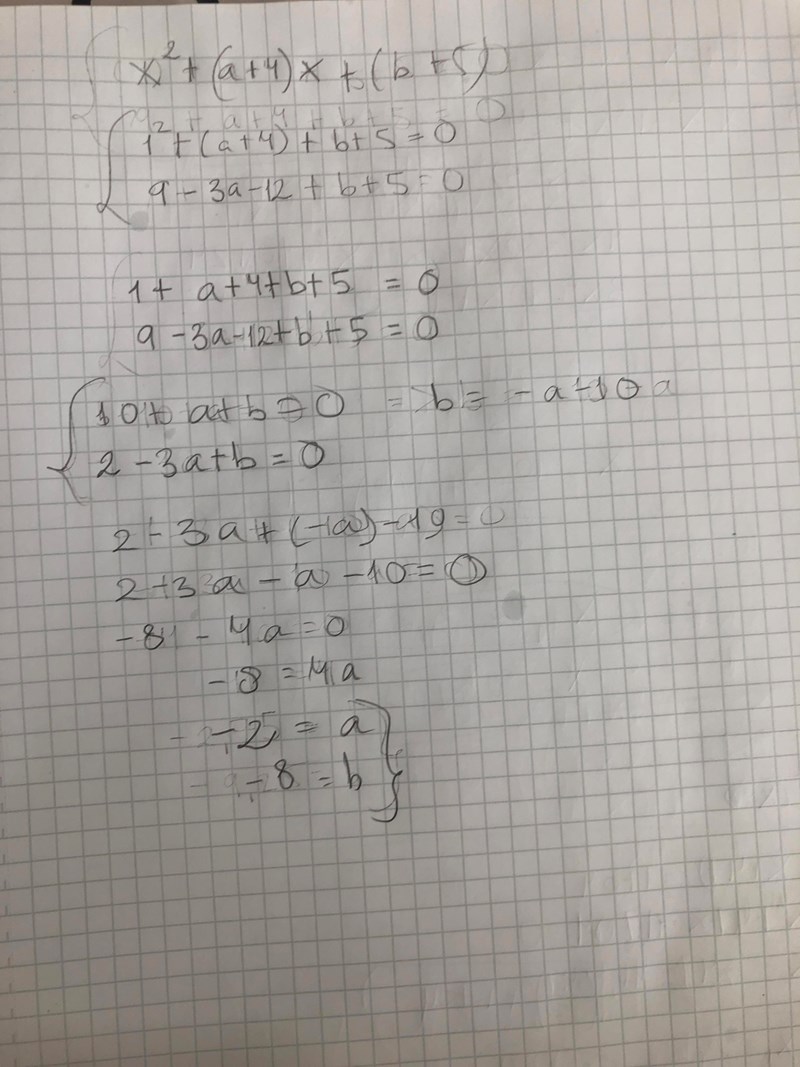 x² + (a+4)x + (b+5)
1² + (a+4) + b+5 = 0
9 - 3a - 12 + b+5 = 0
1 + a+4+b+5 = 0
9 - 3a - 12 + b + 5 = 0
10 + a + b = 0 = b = -a - 10
2 - 3a + b = 0
2 - 3a + (-a) - 10 = 0
2 - 3a - a - 10 = 0
-8 - 4a = 0
-8 = 4a
-2 = a
-8 = b